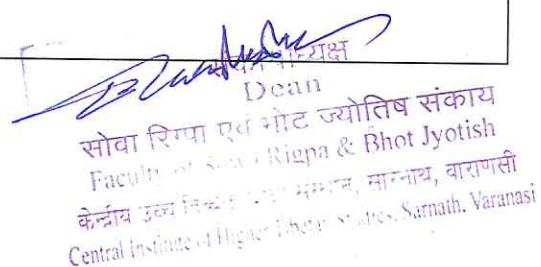 Dean
सोवा रिग्पा एवं भोट ज्योतिष संकाय
Faculty of Rigpa & Bhot Jyotish
केन्द्रीय उच्च संस्थान, सारनाथ, वाराणसी
Central Institute of Higher Studies, Sarnath, Varanasi